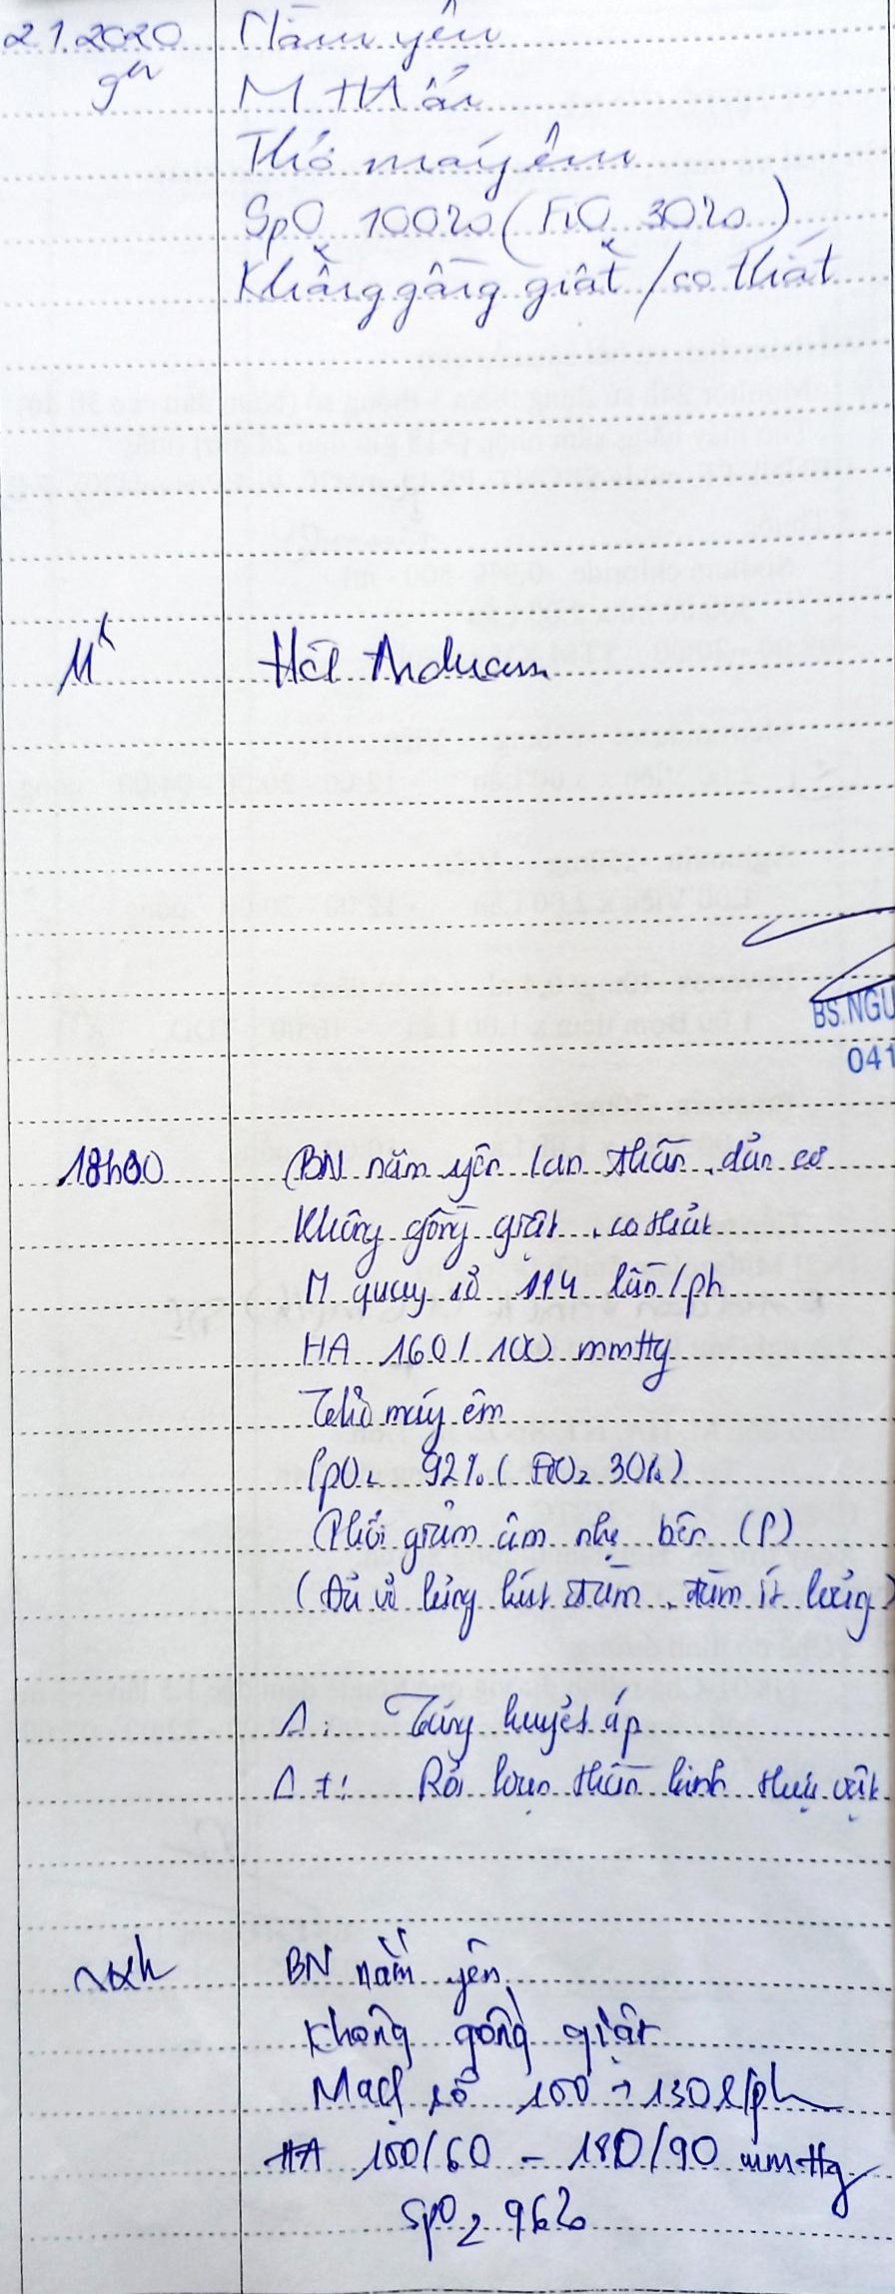 2.1.2020 Nằm yên
9h M HA ổn
Thở máy êm
SpO 100% (FiO 30%)
Không gồng giật / co thắt
11h Hết Arduan
BS.NGU
041
18h00 BN nằm yên / an thần, dãn cơ
Không gồng giật, co thắt
M quay rõ 114 lần/ph
HA 160/100 mmHg
Thở máy êm
SpO2 92% (FiO2 30%)
Phổi giảm âm nhẹ bên (P)
(Đã vỗ lưng hút đàm, đàm ít loãng)
Δ: Tăng huyết áp
Δ ≠: Rối loạn thần kinh thực vật
BN nằm yên
Không gồng giật
Mạch rõ 100 → 130 l/ph
HA 100/60 - 180/90 mmHg
SpO2 96%